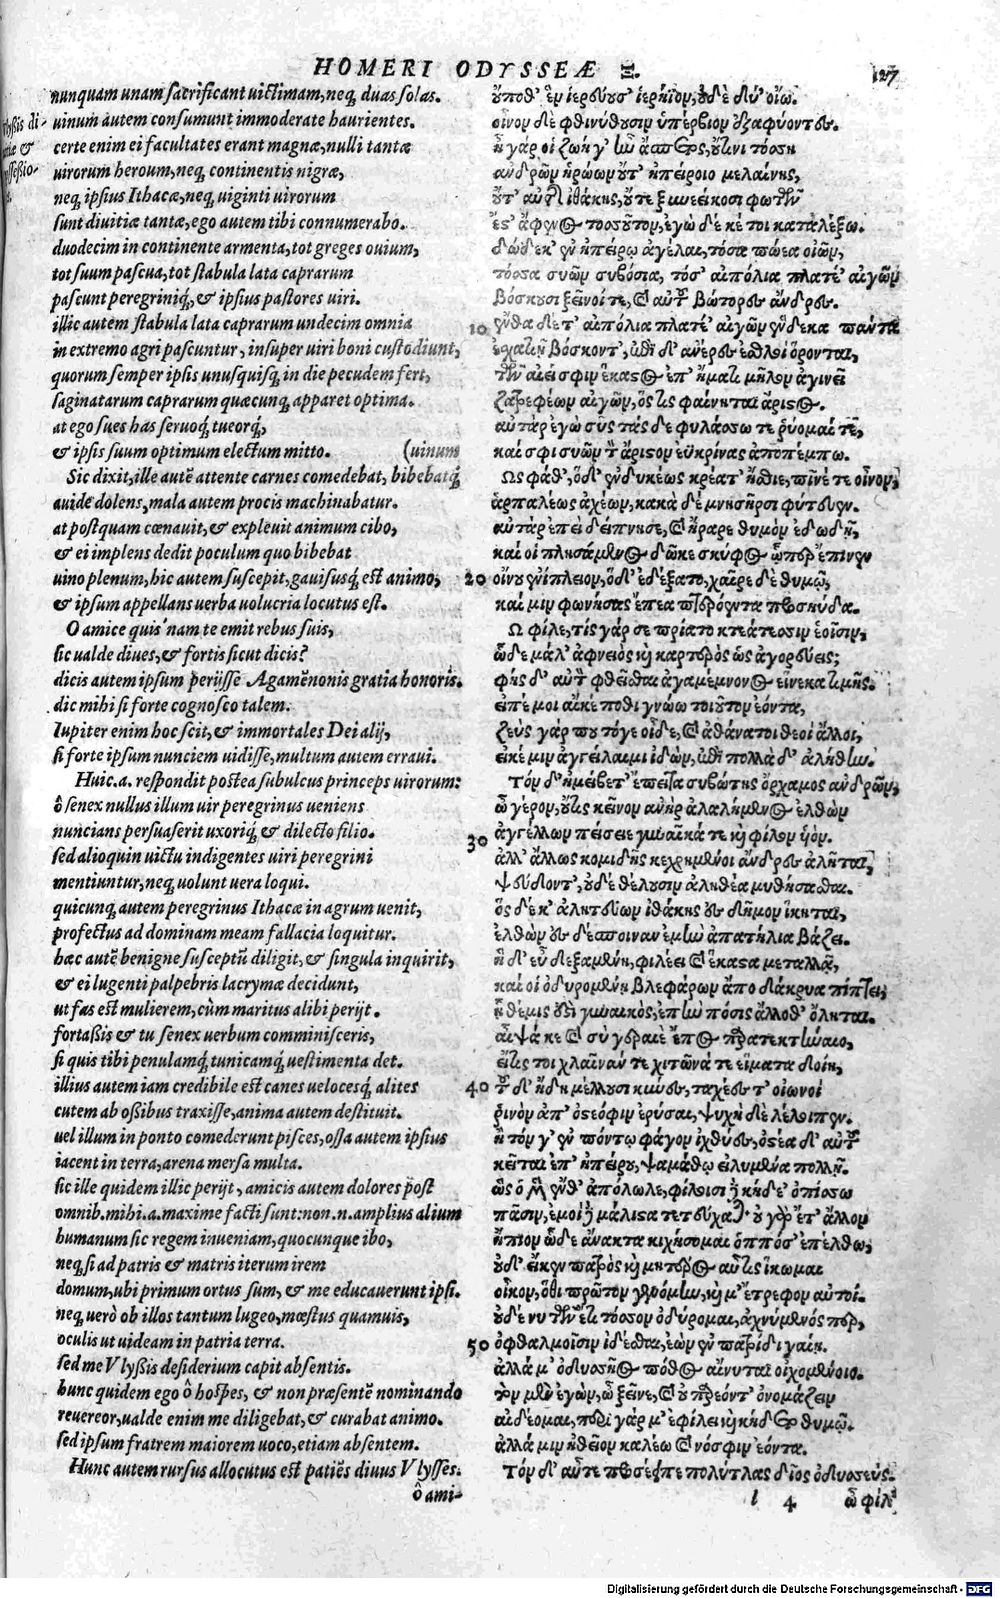 HOMERI ODYSSEÆ Ξ. 127
nunquam unam sacrificant uictimam, neq; duas solas.
uinum autem consumunt immoderate haurientes.
certe enim ei facultates erant magnæ, nulli tantæ
uirorum heroum, neq; continentis nigræ,
neq; ipsius Ithacæ, neq; uiginti uirorum
sunt diuitiæ tantæ, ego autem tibi connumerabo.
duodecim in continente armenta, tot greges ouium,
tot suum pascua, tot stabula lata caprarum
pascunt peregriniq́;, & ipsius pastores uiri.
illic autem stabula lata caprarum undecim omnia
in extremo agri pascuntur, insuper uiri boni custodiunt,
quorum semper ipsis unusquisq; in die pecudem fert,
saginatarum caprarum quæcunq; apparet optima.
at ego sues has seruoq́; tueorq́;,
& ipsis suum optimum electum mitto. (uinum
Sic dixit, ille autē attente carnes comedebat, bibebatq́;
auide dolens, mala autem procis machinabatur.
at postquam cœnauit, & expleuit animum cibo,
& ei implens dedit poculum quo bibebat
uino plenum, hic autem suscepit, gauisusq́; est animo,
& ipsum appellans uerba uolucria locutus est.
O amice quis nam te emit rebus suis,
sic ualde diues, & fortis sicut dicis?
dicis autem ipsum perijsse Agamēnonis gratia honoris.
dic mihi si forte cognosco talem.
Iupiter enim hoc scit, & immortales Dei alij,
si forte ipsum nunciem uidisse, multum autem erraui.
Huic.a. respondit postea subulcus princeps uirorum:
ô senex nullus illum uir peregrinus ueniens
nuncians persuaserit uxoriq́; & dilecto filio.
sed alioquin uictu indigentes uiri peregrini
mentiuntur, neq; uolunt uera loqui.
quicunq; autem peregrinus Ithacæ in agrum uenit,
profectus ad dominam meam fallacia loquitur.
hæc autē benigne susceptū diligit, & singula inquirit,
& ei lugenti palpebris lacrymæ decidunt,
ut fas est mulierem, cùm maritus alibi perijt.
fortaßis & tu senex uerbum comminisceris,
si quis tibi penulamq́; tunicamq́; uestimenta det.
illius autem iam credibile est canes uelocesq́; alites
cutem ab oßibus traxisse, anima autem destituit.
uel illum in ponto comederunt pisces, ossa autem ipsius
iacent in terra, arena mersa multa.
sic ille quidem illic perijt, amicis autem dolores pòst
omnib. mihi.a. maxime facti sunt: non.n. amplius alium
humanum sic regem inueniam, quocunque ibo,
neq; si ad patris & matris iterum irem
domum, ubi primum ortus sum, & me educauerunt ipsi.
neq; uerò ob illos tantum lugeo, mœstus quamuis,
oculis ut uideam in patria terra.
sed me Vlyßis desiderium capit absentis.
hunc quidem ego ô hospes, & non præsentē nominando
reuereor, ualde enim me diligebat, & curabat animo.
sed ipsum fratrem maiorem uoco, etiam absentem.
Hunc autem rursus allocutus est patiēs diuus Vlysses.
ô ami-
ὕποθ' ἓν ἱερεύουσ' ἱερήϊον, οὐδὲ δύ' οἴω.
οἶνον δὲ φθινύθουσιν ὑπέρβιον ἐξαφύοντες.
ἦ γάρ οἱ ζωή γ' ἦν ἄσπετος, οὔτινι τόσση
ἀνδρῶν ἡρώων οὔτ' ἠπείροιο μελαίνης,
οὔτ' αὐτῆς ἰθάκης, οὔτε ξυνεείκοσι φωτῶν
ἔστ' ἄφενος τοσοῦτον, ἐγὼ δέ κέ τοι καταλέξω.
δώδεκ' ἐν ἠπείρῳ ἀγέλαι, τόσα πώεα οἰῶν,
τόσσα συῶν συβόσια, τόσ' αἰπόλια πλατέ' αἰγῶν
βόσκουσι ξεῖνοί τε, καὶ αὐτοῦ βώτορες ἄνδρες.
10 ἔνθα δέ τ' αἰπόλια πλατέ' αἰγῶν ἕνδεκα πάντα
ἐσχατιῇ βόσκοντ', ἐπὶ δ' ἀνέρες ἐσθλοὶ ὄρονται,
τῶν αἰεί σφιν ἕκαστος ἐπ' ἤματι μῆλον ἀγινεῖ
ζατρεφέων αἰγῶν, ὅστις φαίνηται ἄριστος.
αὐτὰρ ἐγὼ σῦς τάς δε φυλάσσω τε ῥύομαί τε,
καί σφι συῶν τὸν ἄριστον ἐϋκρίνας ἀποπέμπω.
Ως φάθ', ὁ δ' ἐνδυκέως κρέατ' ἤσθιε, πῖνέ τε οἶνον,
ἁρπαλέως ἀχέων, κακὰ δὲ μνηστῆρσι φύτευεν.
αὐτὰρ ἐπεὶ δείπνησε, καὶ ἤραρε θυμὸν ἐδωδῇ,
καί οἱ πλησάμενος δῶκε σκύφος ᾧπερ ἔπινεν
20 οἴνου ἐνίπλειον, ὁ δ' ἐδέξατο, χαῖρε δὲ θυμῷ,
καί μιν φωνήσας ἔπεα πτερόεντα προσηύδα.
Ω φίλε, τίς γάρ σε πρίατο κτεάτεσσιν ἑοῖσιν,
ὧδε μάλ' ἀφνειὸς καὶ καρτερὸς ὡς ἀγορεύεις;
φῂς δ' αὐτὸν φθεῖσθαι ἀγαμέμνονος εἵνεκα τιμῆς.
εἰπέ μοι αἴκε ποθι γνώω τοιοῦτον ἐόντα,
ζεὺς γάρ που τόγε οἶδε, καὶ ἀθάνατοι θεοὶ ἄλλοι,
εἰκέ μιν ἀγγείλαιμι ἰδὼν, ἐπὶ πολλὰ δ' ἀλήθην.
Τὸν δ' ἠμείβετ' ἔπειτα συβώτης ὄρχαμος ἀνδρῶν,
ὦ γέρον, οὔτις κεῖνον ἀνὴρ ἀλαλήμενος ἐλθὼν
30 ἀγγέλλων πείσειε γυναῖκά τε καὶ φίλον υἱόν.
ἀλλ' ἄλλως κομιδῆς κεχρημένοι ἄνδρες ἀλῆται,
ψεύδοντ', οὐδὲ θέλουσιν ἀληθέα μυθήσασθαι.
ὃς δέ κ' ἀλητεύων ἰθάκης ἐς δῆμον ἵκηται,
ἐλθὼν ἐς δέσποιναν ἐμὴν ἀπατήλια βάζει.
ἡ δ' εὖ δεξαμένη, φιλέει καὶ ἕκαστα μεταλλᾷ,
καί οἱ ὀδυρομένη βλεφάρων ἄπο δάκρυα πίπτει,
ἣ θέμις ἐστὶ γυναικὸς, ἐπὴν πόσις ἄλλοθ' ὄληται.
αἶψά κε καὶ σὺ γεραιὲ ἔπος παρατεκτήναιο,
εἴτις τοι χλαῖνάν τε χιτῶνά τε εἵματα δοίη,
40 τοῦ δ' ἤδη μέλλουσι κύνες, ταχέες τ' οἰωνοὶ
ῥινὸν ἀπ' ὀστεόφιν ἐρύσαι, ψυχὴ δὲ λέλοιπεν.
ἢ τόν γ' ἐν πόντῳ φάγον ἰχθύες, ὀστέα δ' αὐτοῦ
κεῖται ἐπ' ἠπείρου, ψαμάθῳ εἰλυμένα πολλῇ.
ὣς ὁ μὲν ἔνθ' ἀπόλωλε, φίλοισι δὲ κήδε' ὀπίσσω
πᾶσιν, ἐμοὶ δὲ μάλιστα τετεύχαται· οὐ γὰρ ἔτ' ἄλλον
ἤπιον ὧδε ἄνακτα κιχήσομαι ὁππόσ' ἐπέλθω,
οὐδ' εἴκεν πατρὸς καὶ μητέρος αὖτις ἵκωμαι
οἶκον, ὅθι πρῶτον γενόμην, καί μ' ἔτρεφον αὐτοί.
οὐδέ νυ τῶν ἔτι τόσσον ὀδύρομαι, ἀχνύμενός περ,
50 ὀφθαλμοῖσιν ἰδέσθαι, ἐὼν ἐν πατρίδι γαίῃ.
ἀλλά μ' ὀδυσσῆος πόθος αἴνυται οἰχομένοιο.
τὸν μὲν ἐγὼν, ὦ ξεῖνε, καὶ οὐ παρεόντ' ὀνομάζειν
αἰδέομαι, περὶ γάρ μ' ἐφίλει καὶ κήδετο θυμῷ.
ἀλλά μιν ἠθεῖον καλέω καὶ νόσφιν ἐόντα.
Τὸν δ' αὖτε προσέειπε πολύτλας δῖος ὀδυσσεύς.
l 4 ὦ φίλ'
Digitalisierung gefördert durch die Deutsche Forschungsgemeinschaft - DFG